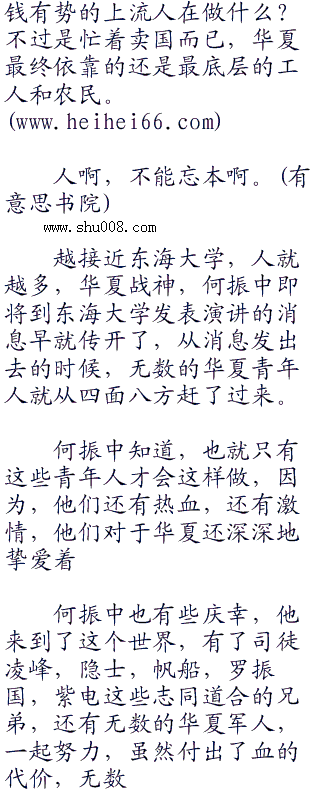 钱有势的上流人在做什么？
不过是忙着卖国而已，华夏
最终依靠的还是最底层的工
人和农民。
(www.heihei66.com)
人啊，不能忘本啊。(有
意思书院)
www.shu008.com
越接近东海大学，人就
越多，华夏战神，何振中即
将到东海大学发表演讲的消
息早就传开了，从消息发出
去的时候，无数的华夏青年
人就从四面八方赶了过来。
何振中知道，也就只有
这些青年人才会这样做，因
为，他们还有热血，还有激
情，他们对于华夏还深深地
挚爱着
何振中也有些庆幸，他
来到了这个世界，有了司徒
凌峰，隐士，帆船，罗振
国，紫电这些志同道合的兄
弟，还有无数的华夏军人，
一起努力，虽然付出了血的
代价，无数